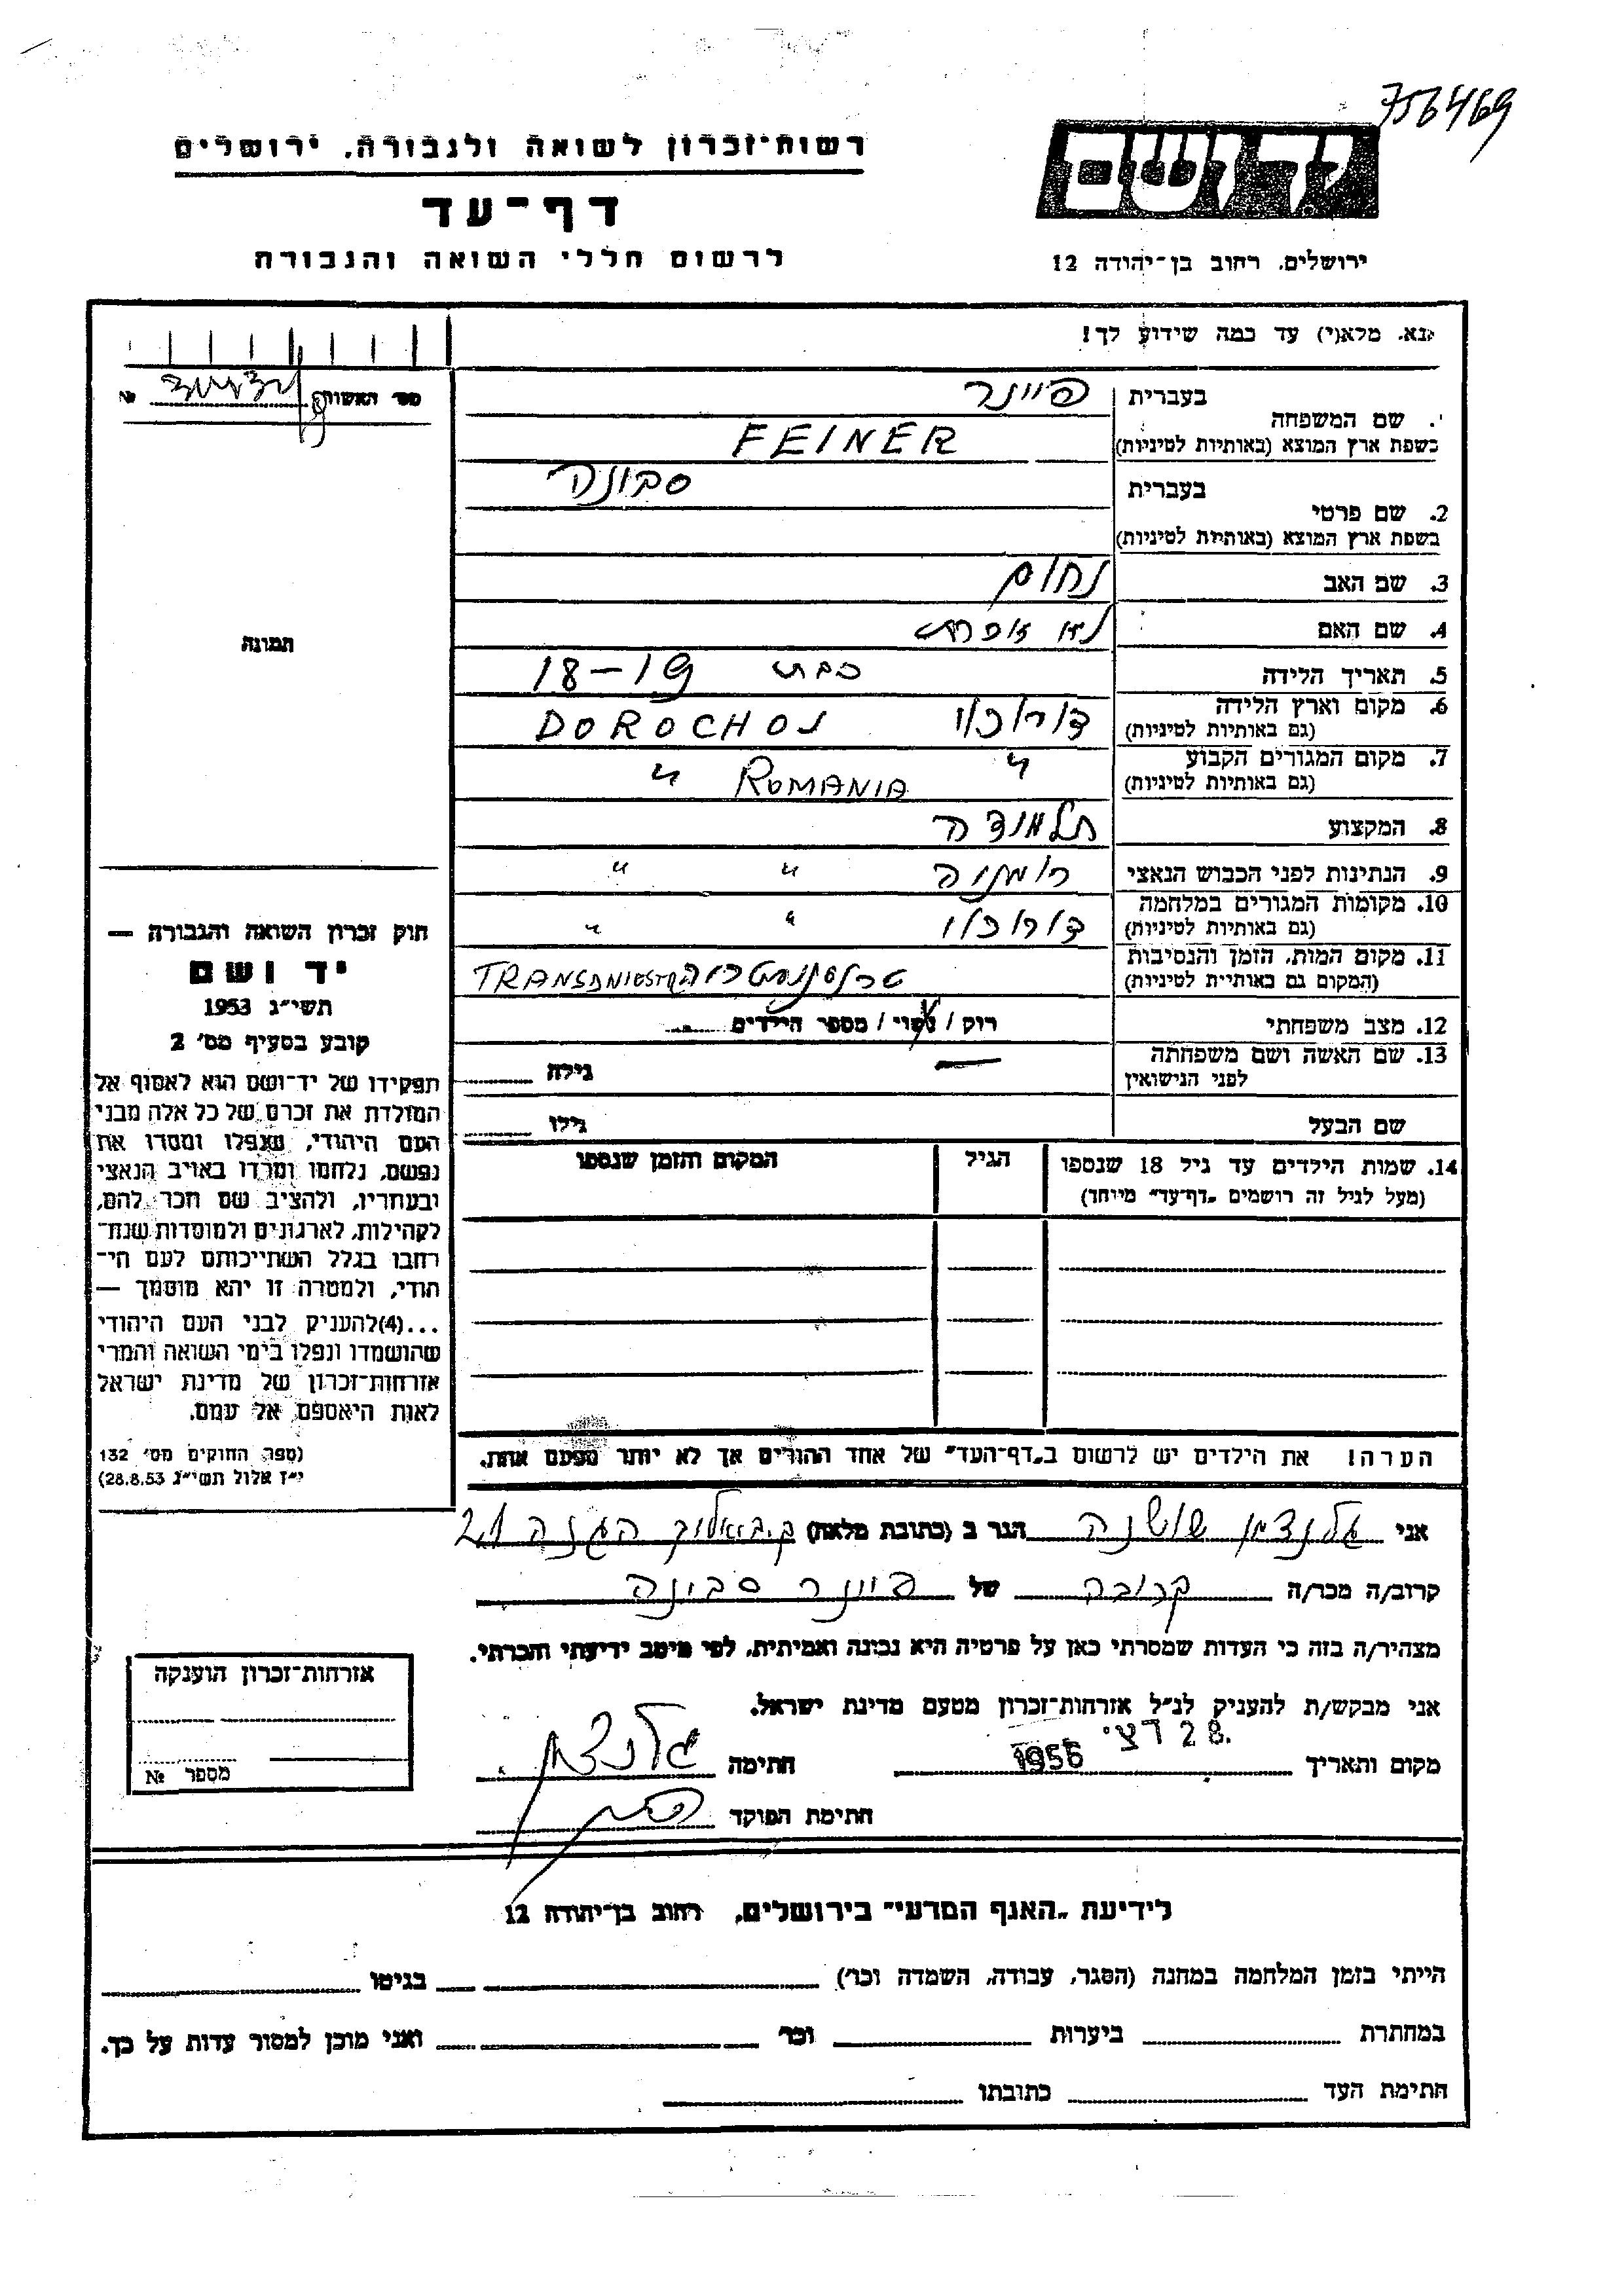 756469
רשות־זכרון לשואה ולגבורה, ירושלים
דף־עד
לרשום חללי השואה והגבורה
יד ושם
ירושלים, רחוב בן־יהודה 12
נא, מלא(י) עד כמה שידוע לך!
מס׳ האשורה №
1. שם המשפחה
בעברית פיינר
בשפת ארץ המוצא (באותיות לטיניות) FEINER
2. שם פרטי
בעברית סבינה
בשפת ארץ המוצא (באותיות לטיניות)
3. שם האב נחום
4. שם האם לא זוכרת
תמונה
5. תאריך הלידה כבת 18-19
6. מקום וארץ הלידה דורוכוי DOROCHOJ
(גם באותיות לטיניות)
7. מקום המגורים הקבוע " ROMANIA "
(גם באותיות לטיניות)
8. המקצוע תלמידה
9. הנתינות לפני הכבוש הנאצי רומניה " "
10. מקומות המגורים במלחמה דורוכוי " "
(גם באותיות לטיניות)
11. מקום המות, הזמן והנסיבות
(המקום גם באותיות לטיניות)
12. מצב משפחתי רוק / נשוי / מספר הילדים
13. שם האשה ושם משפחתה — גילה
לפני הנישואין
שם הבעל גילו
14. שמות הילדים עד גיל 18 שנספו הגיל המקום והזמן שנספו
(מעל לגיל זה רושמים „דף־עד" מיוחד)
הערה! את הילדים יש לרשום ב„דף־העד" של אחד ההורים אך לא יותר מפעם אחת.
חוק זכרון השואה והגבורה —
יד ושם
תשי״ג 1953
קובע בסעיף מס׳ 2
תפקידו של יד־ושם הוא לאסוף אל
המולדת את זכרם של כל אלה מבני
העם היהודי, שנפלו ומסרו את
נפשם, נלחמו ומרדו באויב הנאצי
ובעוזריו, ולהציב שם וזכר להם,
לקהילות, לארגונים ולמוסדות שנח־
רבו בגלל השתייכותם לעם הי־
הודי, ולמטרה זו יהא מוסמך —
...(4)להעניק לבני העם היהודי
שהושמדו ונפלו בימי השואה והמרי
אזרחות־זכרון של מדינת ישראל
לאות היאספם אל עמם.
(ספר החוקים מס׳ 132
י״ז אלול תשי״ג 28.8.53)
אני גלנצמן שושנה הגר ב (כתובת מלאה) ק.ביאליק הגנה 21
קרוב/ה מכר/ה קרובה של פיינר סבינה
מצהיר/ה בזה כי העדות שמסרתי כאן על פרטיה היא נכונה ואמיתית, לפי מיטב ידיעתי והכרתי.
אני מבקש/ת להעניק לנ״ל אזרחות־זכרון מטעם מדינת ישראל.
מקום ותאריך 28 דצי 1956 חתימה גלנצמן
חתימת הפוקד
אזרחות־זכרון הוענקה
מספר №
לידיעת „האגף המדעי" בירושלים, רחוב בן־יהודה 12
הייתי בזמן המלחמה במחנה (הסגר, עבודה, השמדה וכו׳) בגיטו
במחתרת ביערות וכו׳ ואני מוכן למסור עדות על כך.
חתימת העד כתובתו